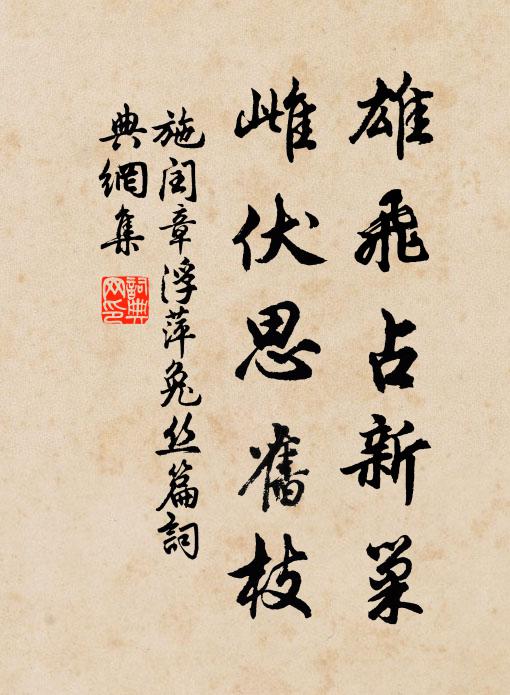 雄飛占新巢
雌伏思舊枝
施闰章浮萍兔丝篇詞
典網集
詞典
网印